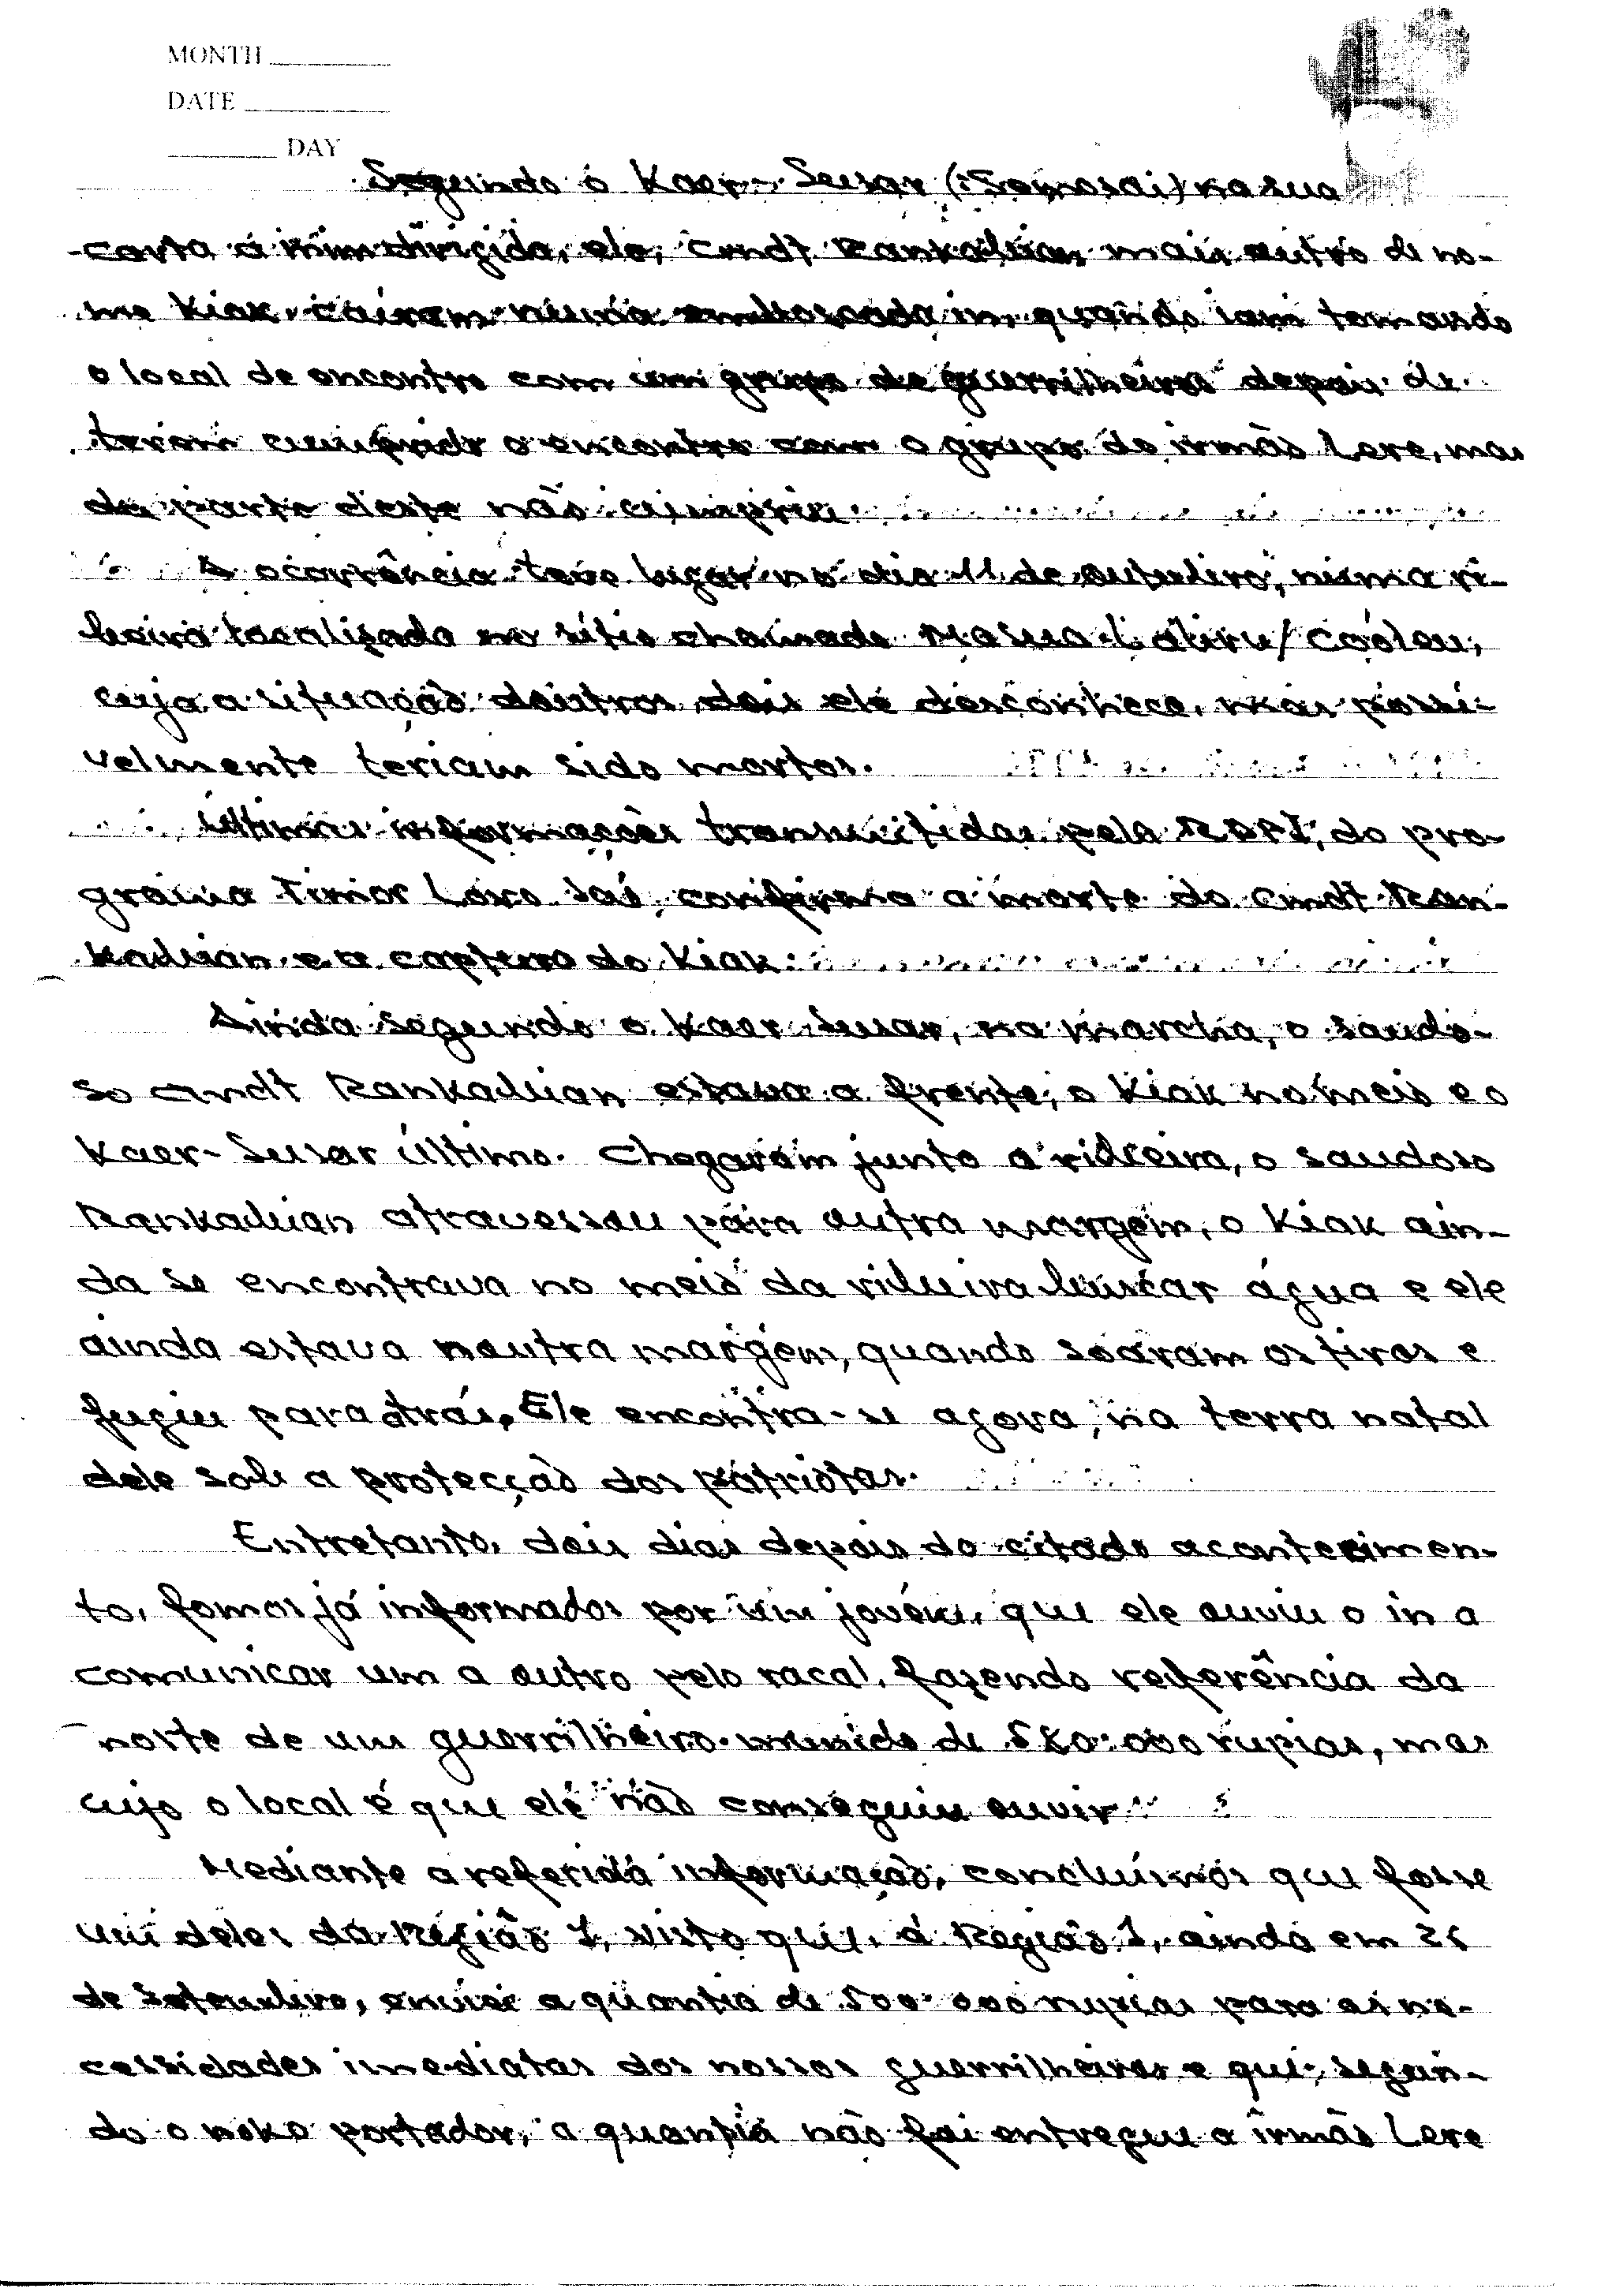 MONTH
DATE
DAY
Segundo o Kaer-Susar (:Somosai) na sua
carta á mim dirigida, ele, Cmdt Rankadian mais outro de no-
me Kiak cairam numa emboscada in, quando iam tomando
o local de encontro com um grupo de guerrilheiros depois de
terem cumprido o encontro com o grupo do irmão Lere, mas
da parte deste não cumpriu.
A ocorrência teve lugar no dia 11 de outubro, numa ri-
beira localizada no sítio chamado Labiru/Coóleu,
cuja a situação doutros dois ele desconhece, mas possi-
velmente teriam sido mortos.
Últimas informações transmitidas pela RDPI, do pro-
grama Timor Loro Saé, confirma a morte do Cmdt Ran-
kaduan e a captura do Kiak.
Ainda segundo o Kaer-Susar, na marcha, o saudo-
so Cmdt Rankaduan estava a frente, o Kiak no meio e o
Kaer-Susar último. Chegaram junto a ribeira, o saudoso
Rankaduan atravessou para outra margem, o Kiak ain-
da se encontrava no meio da ribeira buscar água e ele
ainda estava noutra margem, quando soaram os tiros e
fugiu para atrás. Ele encontra-se agora, na terra natal
dele sob a protecção dos patriotas.
Entretanto, dois dias depois do citado acontecimen-
to, fomos já informados por um jovém, que ele ouviu o in a
comunicar um a outro pelo racal, fazendo referência da
morte de um guerrilheiro munido de 580.000 rupias, mas
cujo o local é que ele não conseguiu ouvir.
Mediante a referida informação, concluímos que fosse
um deles da Região 1, visto que, á Região 1, ainda em 25
de Setembro, enviei a quantia de 500.000 rupias para as ne-
cessidades imediatas dos nossos guerrilheiros e que, segun-
do o noko portador, a quantia não foi entregue a irmão Lere